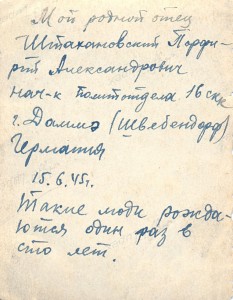 Мой родной отец
Штахановский Порфи-
рий Александрович
нач-к политотдела 16 ск
г. Даммэ (Шведендорф)
Германия
15.6.45г.
Такие люди рожда-
ются один раз в
сто лет.